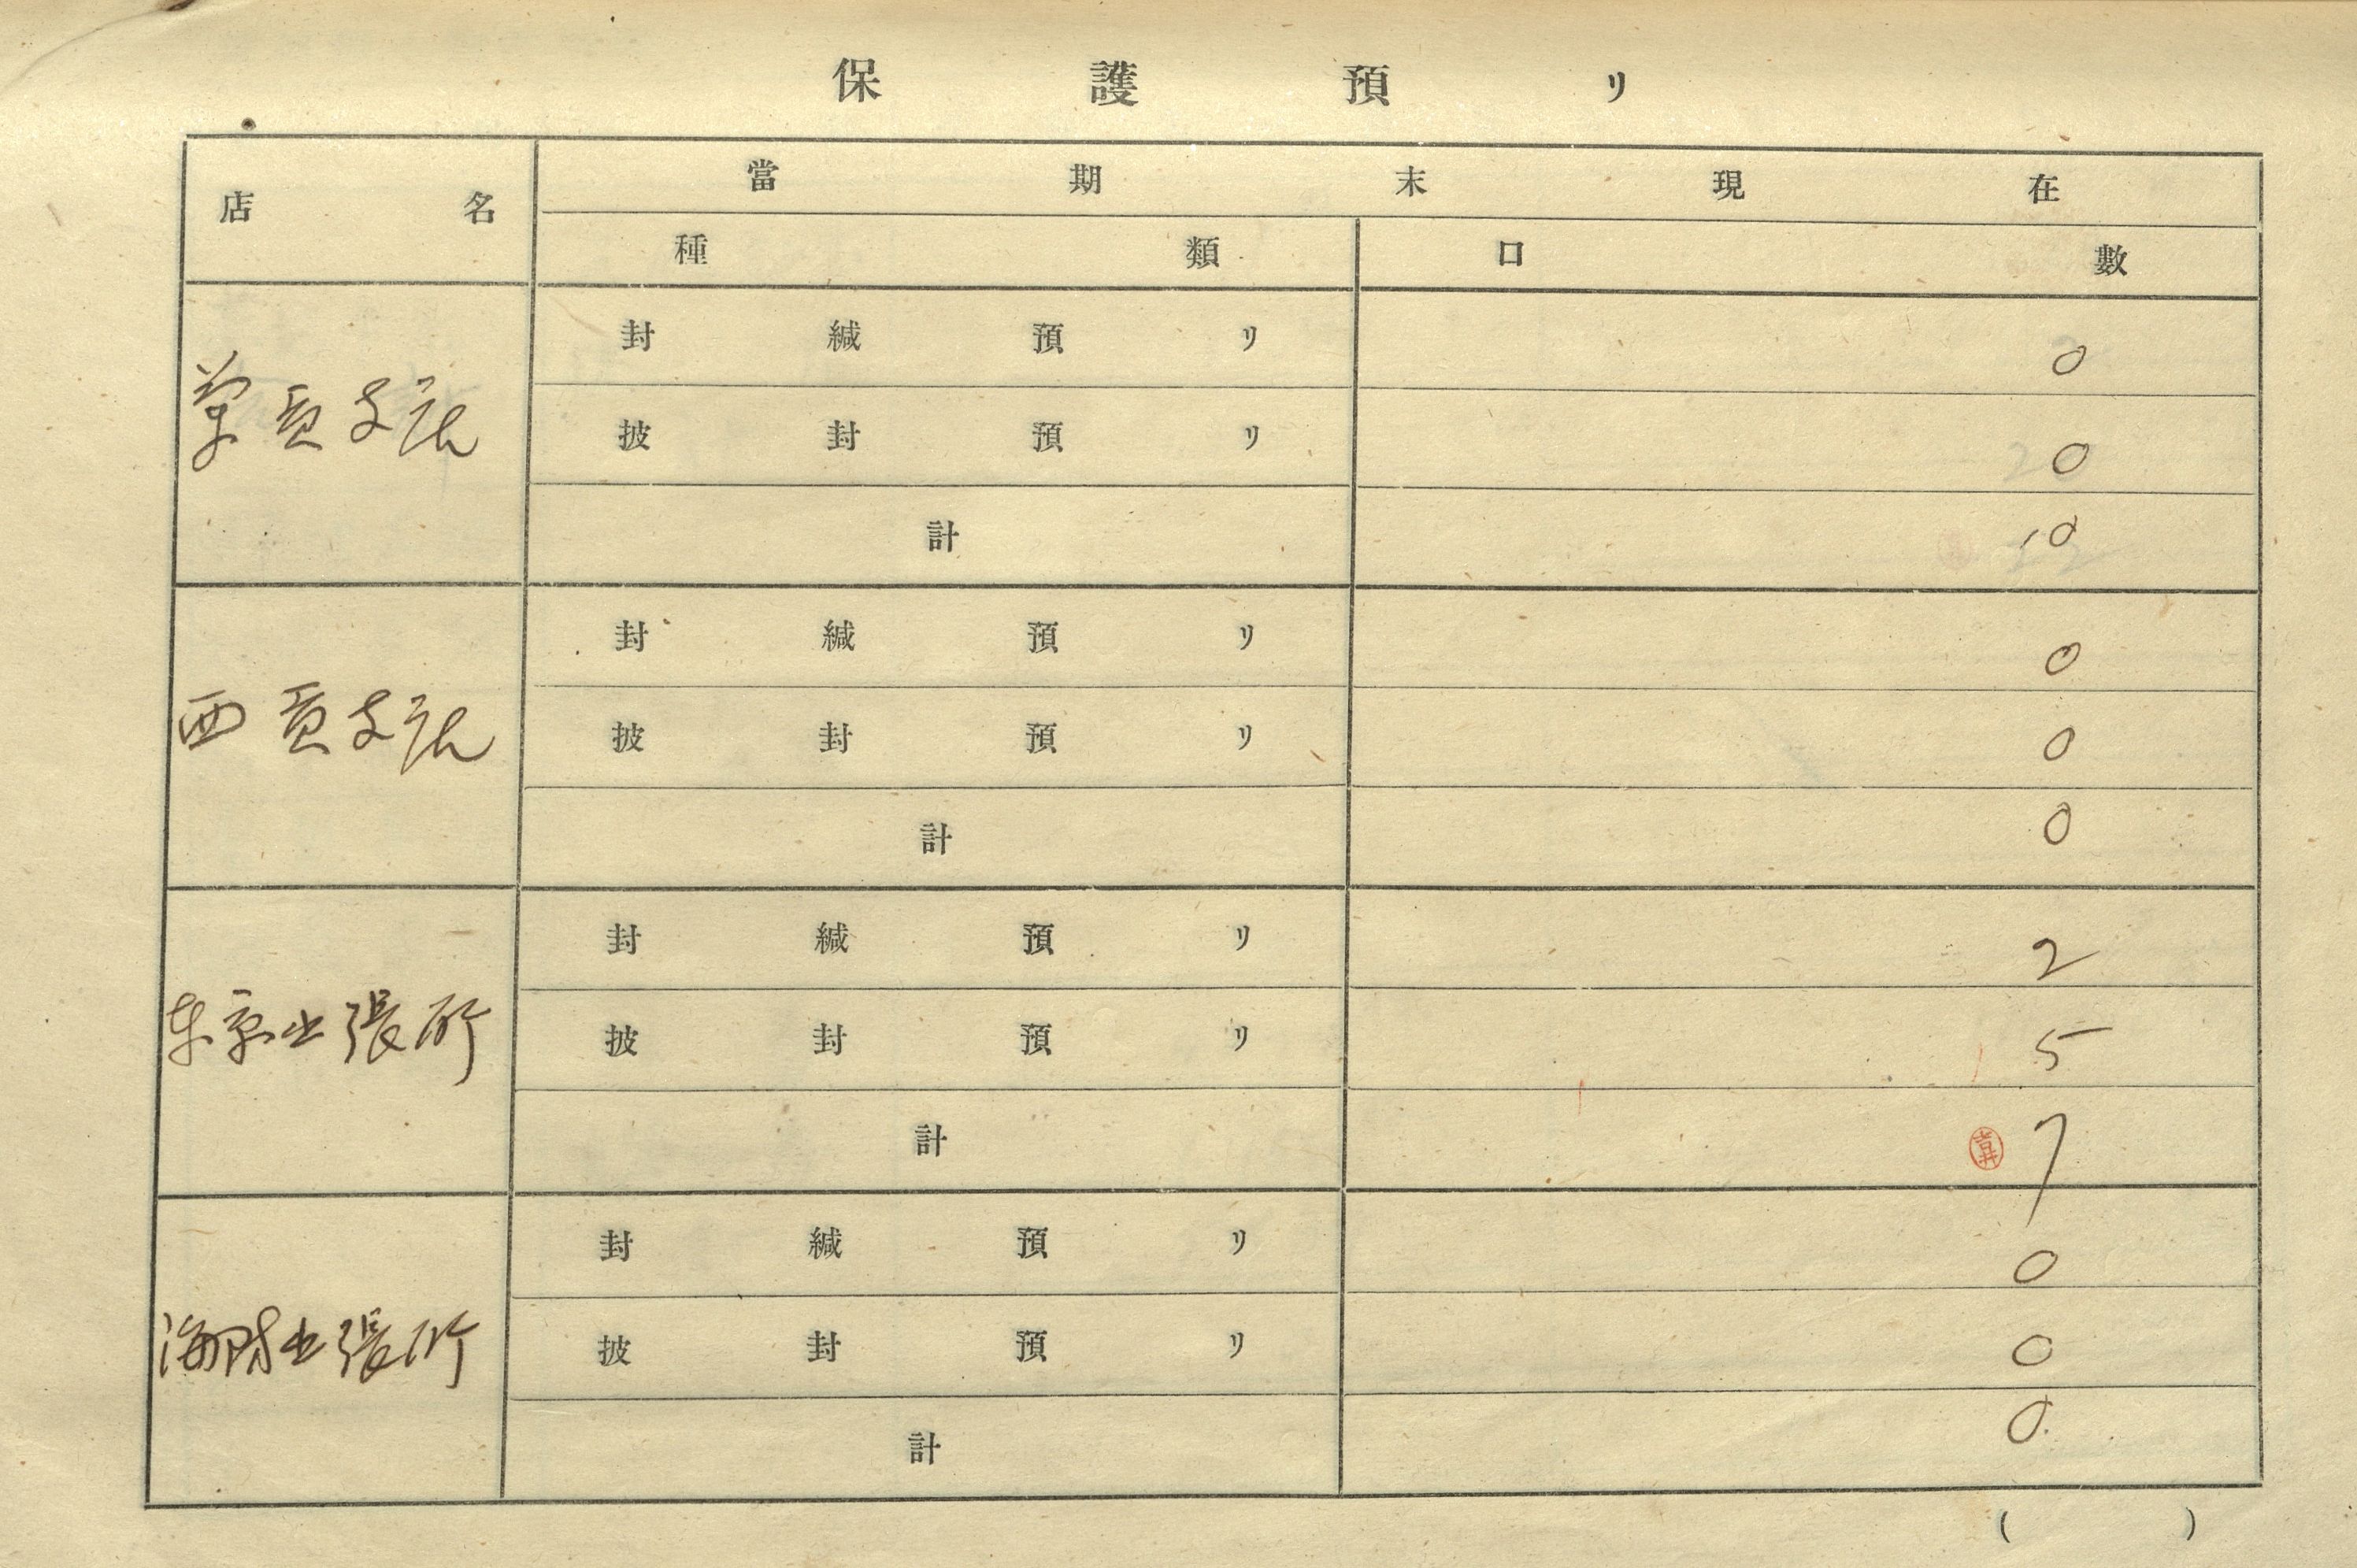 保護預リ
店名
當期末現在
種類 口數
蘭貢支店
封緘預リ 0
披封預リ 0
計 0
西貢支店
封緘預リ 0
披封預リ 0
計 0
東京出張所
封緘預リ 2
披封預リ 5
計 7
海防出張所
封緘預リ 0
披封預リ 0
計 0
( )